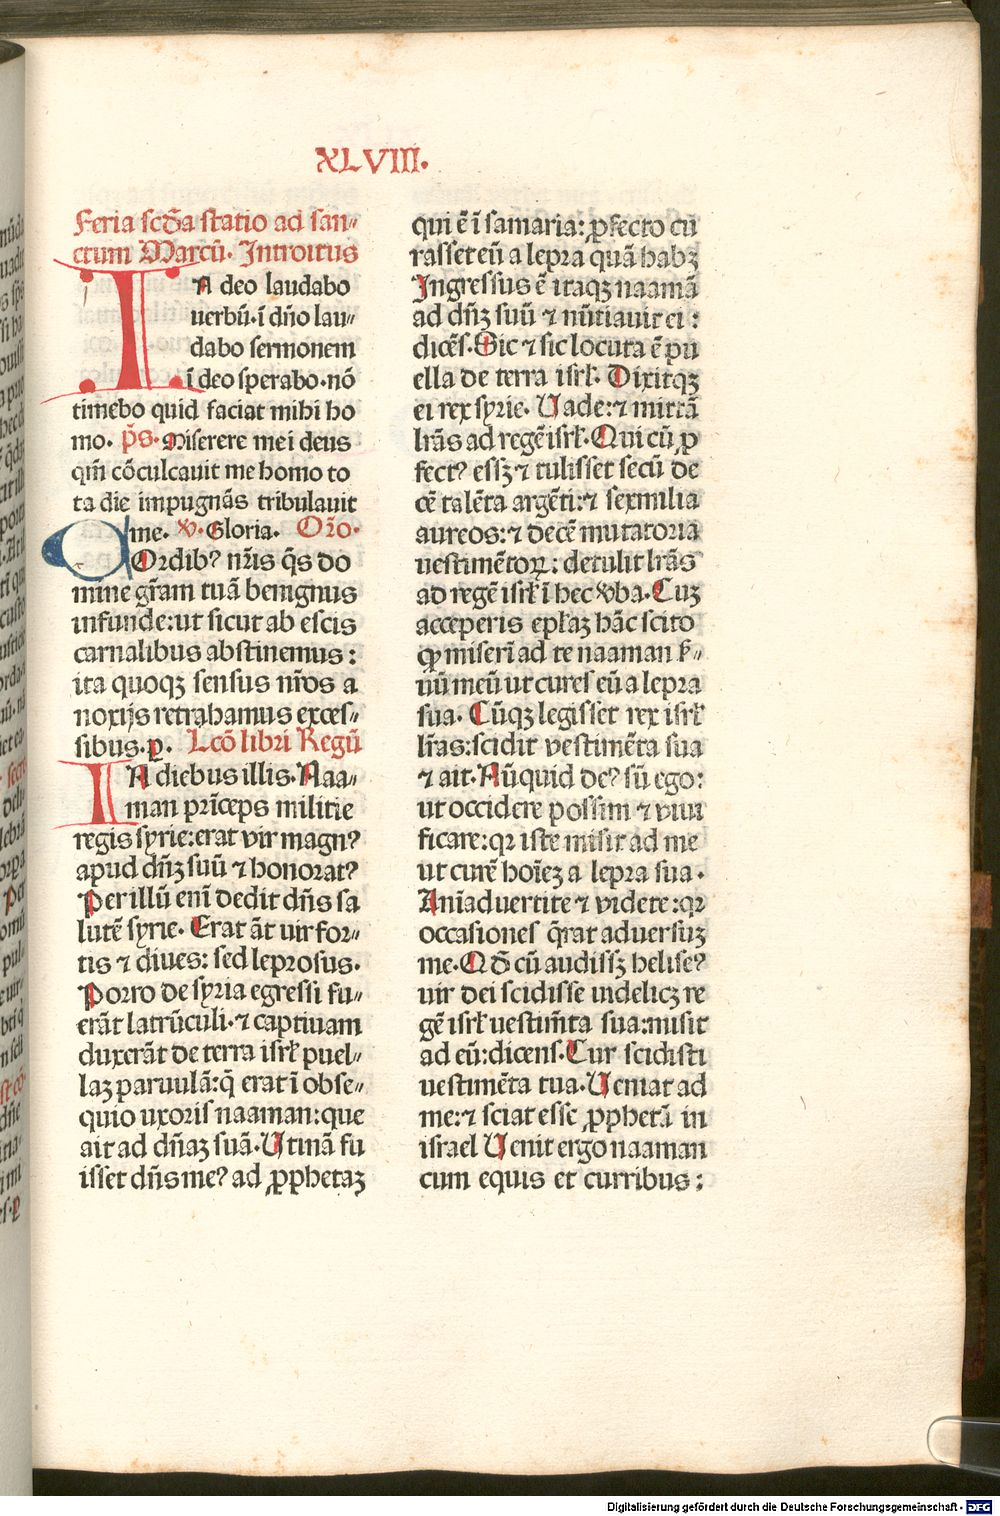 XLVIII.
Feria scđa statio ad san⸗
ctum Marcū. Introitus
IN deo laudabo
uerbū.ī dño lau⸗
dabo sermonem
ī deo sperabo.nō
timebo quid faciat mihi ho
mo. p̄s. Miserere mei deus
qm̄ cōculcauit me homo to
ta die impugnās tribulauit
me. ꝟ. Gloria. Or̄o.
COrdibꝰ nr̄is q̄s do
mine gr̄am tuā benignus
infunde:ut sicut ab escis
carnalibus abstinemus:
ita quoqꝫ sensus nr̄os a
noxijs retrahamus exces⸗
sibus.ꝑ. Lcō libri Regū
IN diebus illis.Naa⸗
man prīceps militie
regis syrie:erat vir magnꝰ
apud dn̄ꝫ suū ⁊ honoratꝰ
Per illū enī dedit dn̄s sa
lutē syrie. Erat āt uir for⸗
tis ⁊ diues: sed leprosus.
Porro de syria egressi fu⸗
erāt latrūculi.⁊ captiuam
duxerāt de terra isrł puel⸗
laꝫ paruulā:q̄ erat ī obse⸗
quio uxoris naaman:que
ait ad dn̄aꝫ suā.Utinā fu
isset dn̄s meꝰ ad ꝓphetaꝫ
qui ē ī samaria:ꝓfecto cu
rasset eū a lepra quā habꝫ
Ingressus ē itaqꝫ naamā
ad dn̄ꝫ suū ⁊ nūtiauit ei:
dicēs.Sic ⁊ sic locuta ē pu
ella de terra isrł. Dixitqꝫ
ei rex syrie. Uade:⁊ mittā
lr̄as ad regē isrł.Qui cū ꝓ
fectꝰ essꝫ ⁊ tulisset secū de
cē talēta argēti:⁊ sexmilia
aureos:⁊ decē mutatoria
uestimētoꝝ: detulit lr̄as
ad regē isrł ī hec ꝟba.Cuꝫ
acceperis epłaꝫ hāc scito
ꝙ miserī ad te naaman ẜ⸗
uū meū ut cures eū a lepra
sua. Cūqꝫ legisset rex isrł
lr̄as:scidit vestimēta sua
⁊ ait.Nūquid deꝰ sū ego:
ut occidere possim ⁊ viui
ficare:qꝛ iste misit ad me
ut curē hoīeꝫ a lepra sua.
Anīaduertite ⁊ videte:qꝛ
occasiones q̄rat aduersuꝫ
me.Qđ cū audissꝫ heliseꝰ
uir dei scidisse uidelicꝫ re
gē isrł uestim̄ta sua:misit
ad eū:dicens.Cur scidisti
uestimēta tua.Ueniat ad
me:⁊ sciat esse ꝓphetā in
israel Uenit ergo naaman
cum equis et curribus:
Digitalisierung gefördert durch die Deutsche Forschungsgemeinschaft - DFG